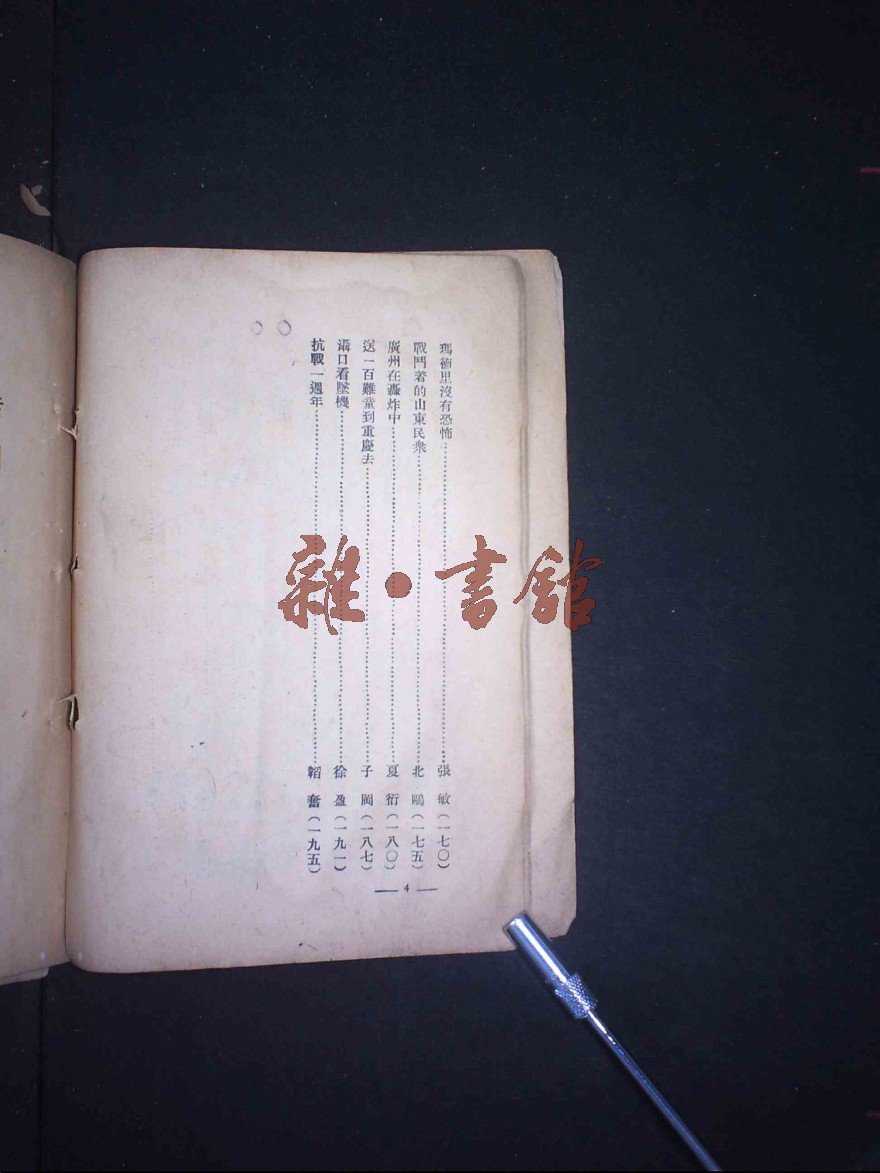 瑪德里沒有恐怖……張敏(一七〇)
戰鬥著的山東民衆……北鷗(一七五)
廣州在轟炸中……夏衍(一八〇)
送一百難童到重慶去……子岡(一八七)
灄口看墜機……徐盈(一九一)
抗戰一週年……韜奮(一九五)
— 4 —
雜·書館